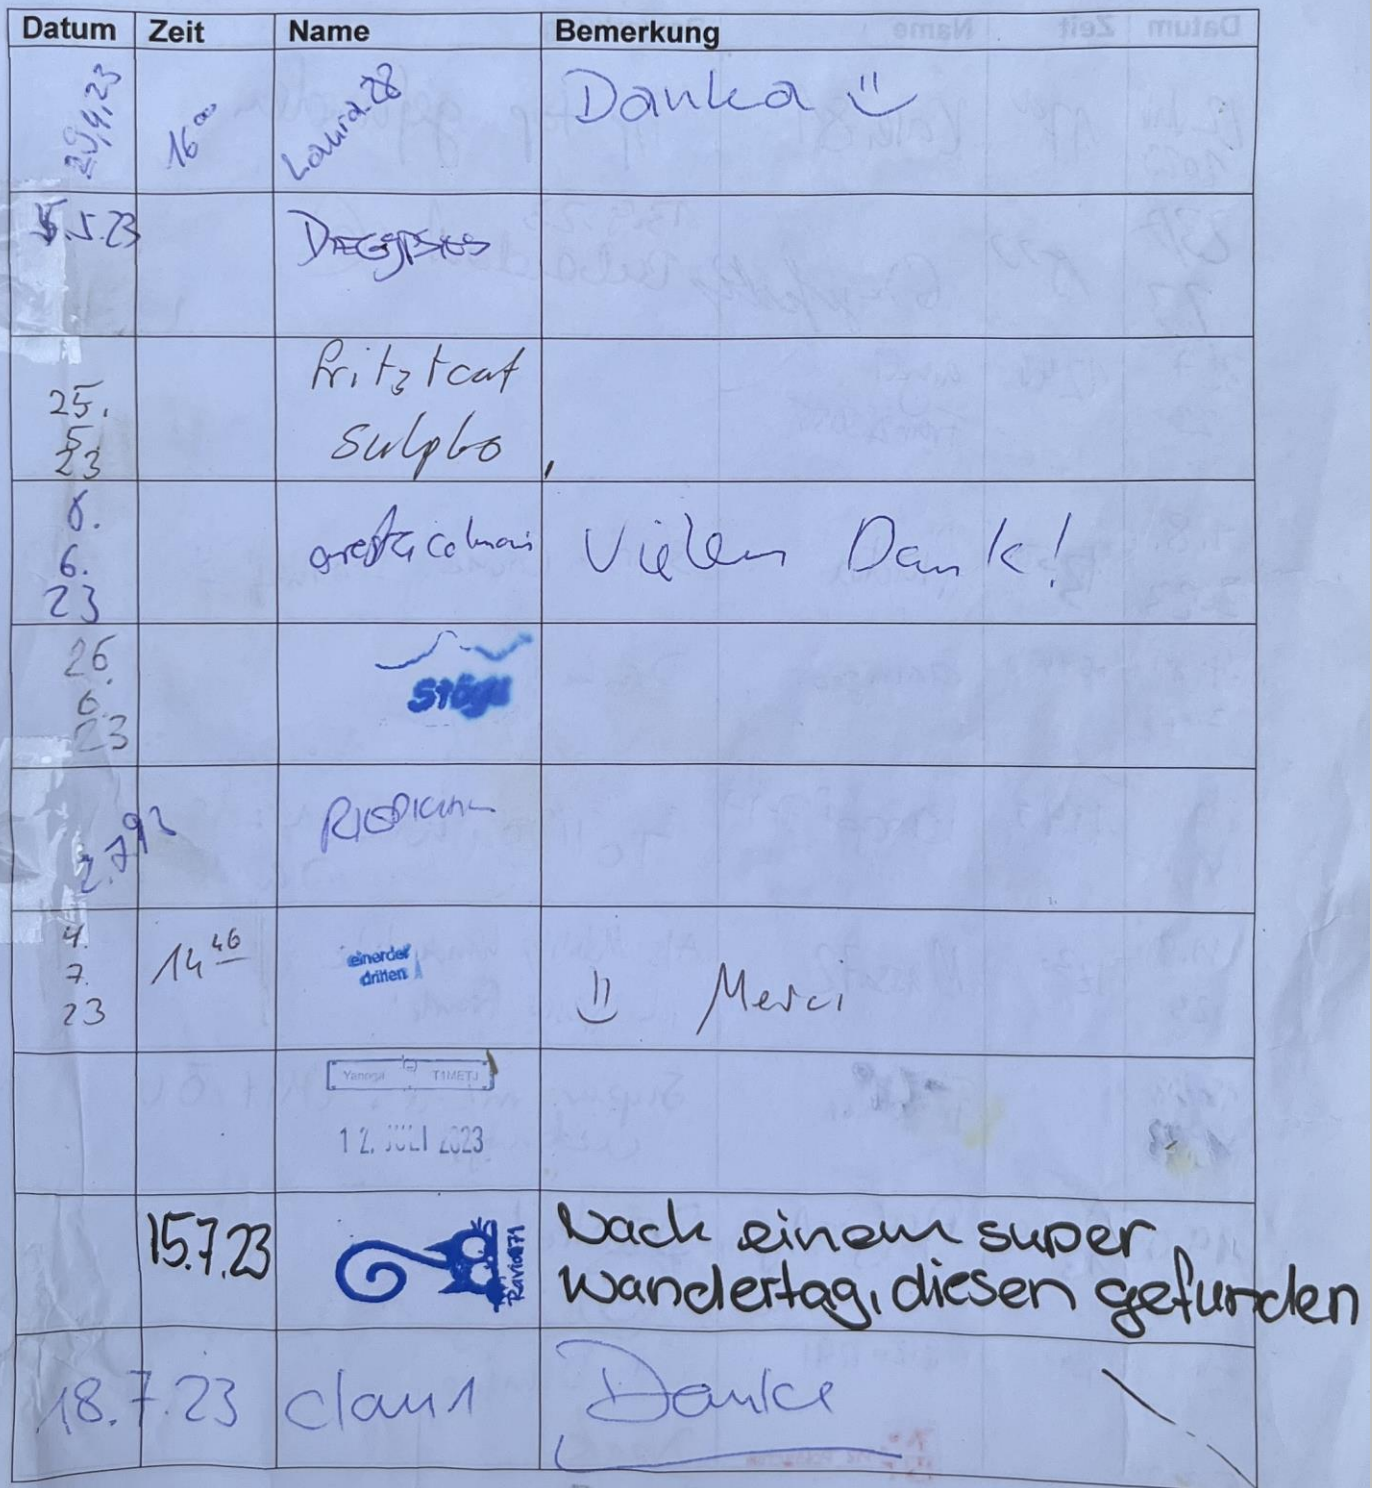 Datum Zeit Name Bemerkung
29.4.23 16⁰⁰ Laura.28 Danka
5.5.23
fritztcat
25.
5
23
Sulpbo
8.
6.
23
Vielen Dank!
26.
6.
23
Stögi
2.7.23
4.
7.
23
14⁴⁶
einerder
dritten
Merci
T1METJ
12. JULI 2023
15.7.23
Ravio871
Nach einem super
wandertag, diesen gefunden
18.7.23 claun Danke